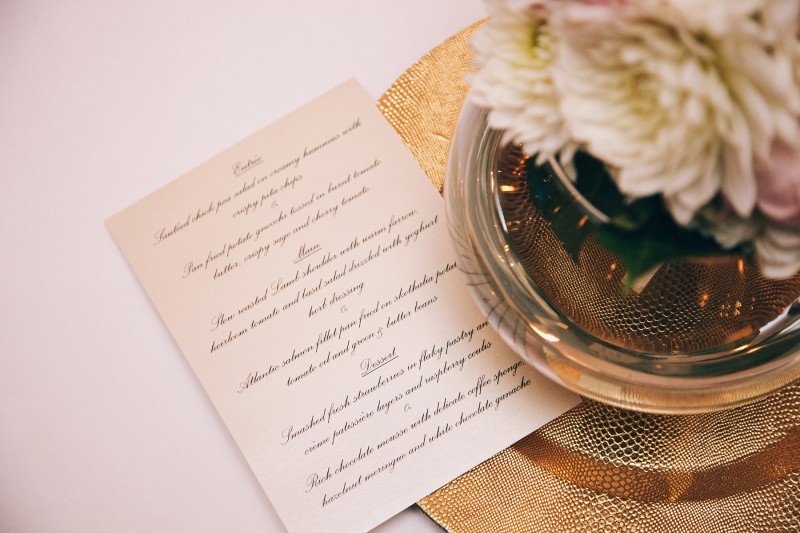 Entrée
Sautéed chick pea salad on creamy hummus with
crispy pita chips
&
Pan fried potato gnocchi tossed in burnt tomato
butter, crispy sage and cherry tomato
Main
Slow roasted Lamb shoulder with warm farrow,
heirloom tomato and basil salad drizzled with yoghurt
herb dressing
&
Atlantic salmon fillet pan fried on skothalia potato
tomato oil and green & butter beans
Dessert
Smashed fresh strawberries in flaky pastry
crème patissière layers and raspberry coulis
&
Rich chocolate mousse with delicate coffee sponge,
hazelnut meringue and white chocolate ganache